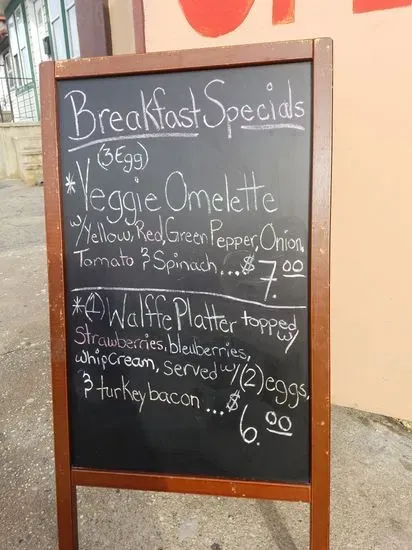 OPE
Breakfast Specials
(3 Egg)
*Veggie Omelette
w/Yellow, Red, Green Pepper, Onion,
Tomato & Spinach...$7.00
*(1) Walffe Platter topped w/
Strawberries, bleuberries,
whip cream, served w/(2) eggs,
& turkey bacon ...$6.00